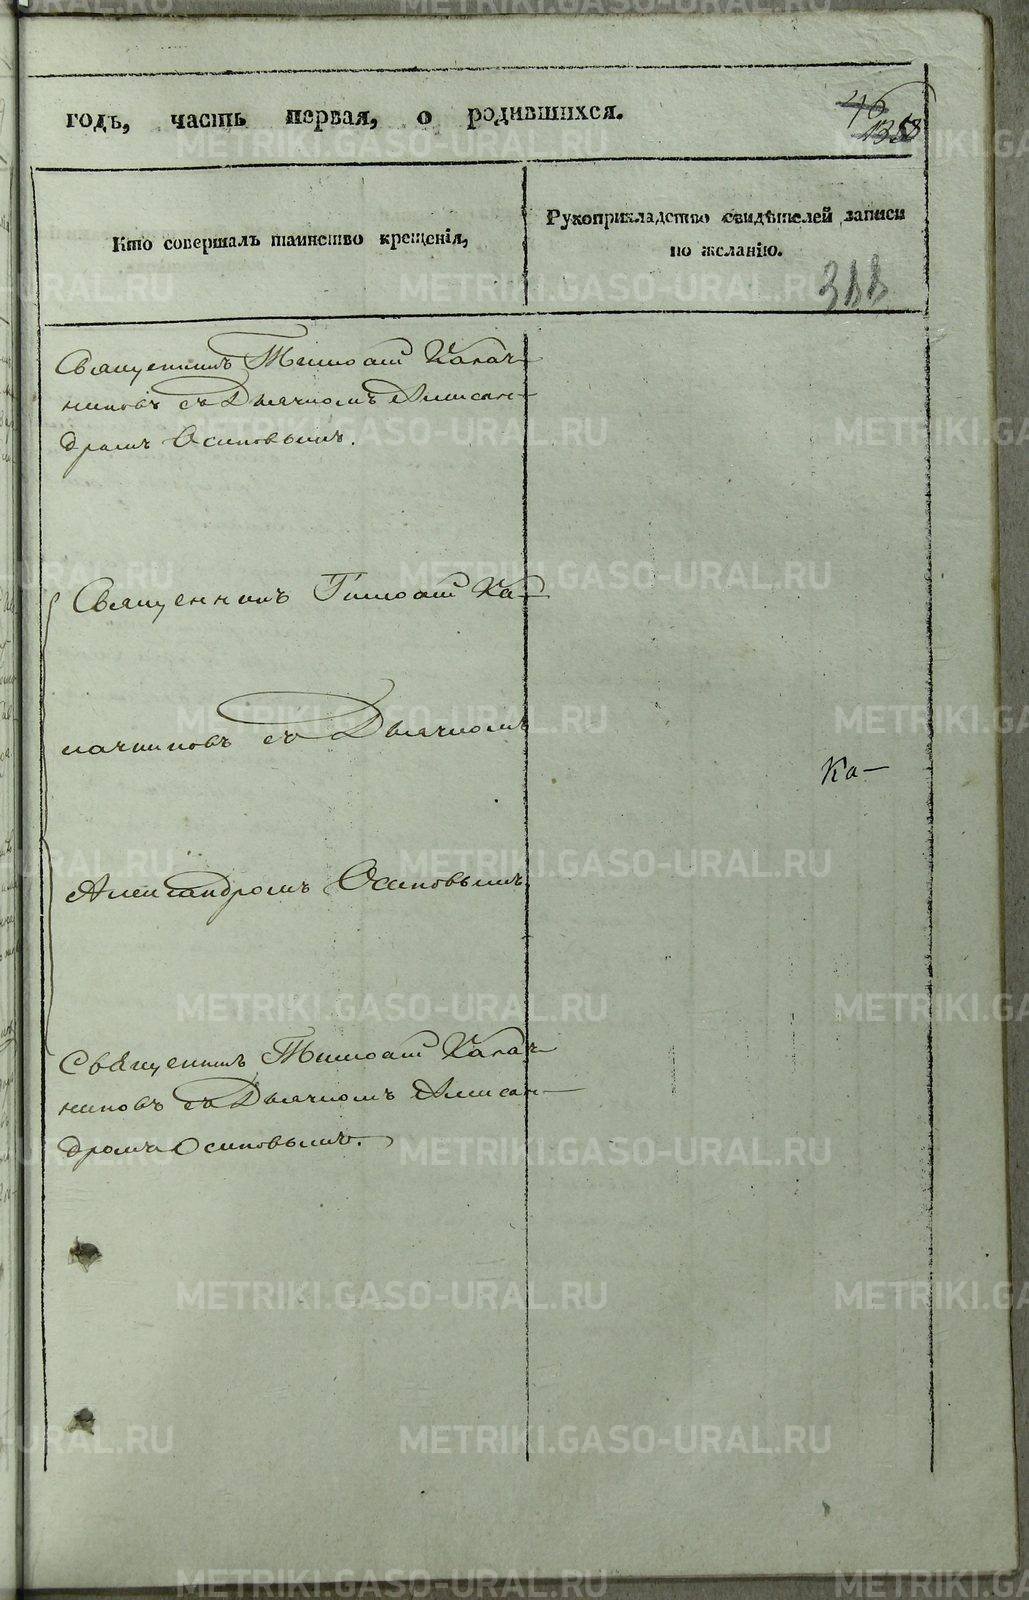 годъ, часть первая, о родившихся.
46
1358
Кто совершалъ таинство крещенія,
Рукоприкладство свидѣтелей записи
по желанію.
388
Священникъ Тимоѳей Калач-
никовъ съ Дьячкомъ Алексан-
дромъ Осиповымъ.
Священникъ Тимоѳей Ка-
лачниковъ съ Дьячкомъ
Ка-
Александромъ Осиповымъ
Священникъ Тимоѳей Калач-
никовъ съ Дьячкомъ Алексан-
дромъ Осиповымъ.
METRIKI.GASO-URAL.RU